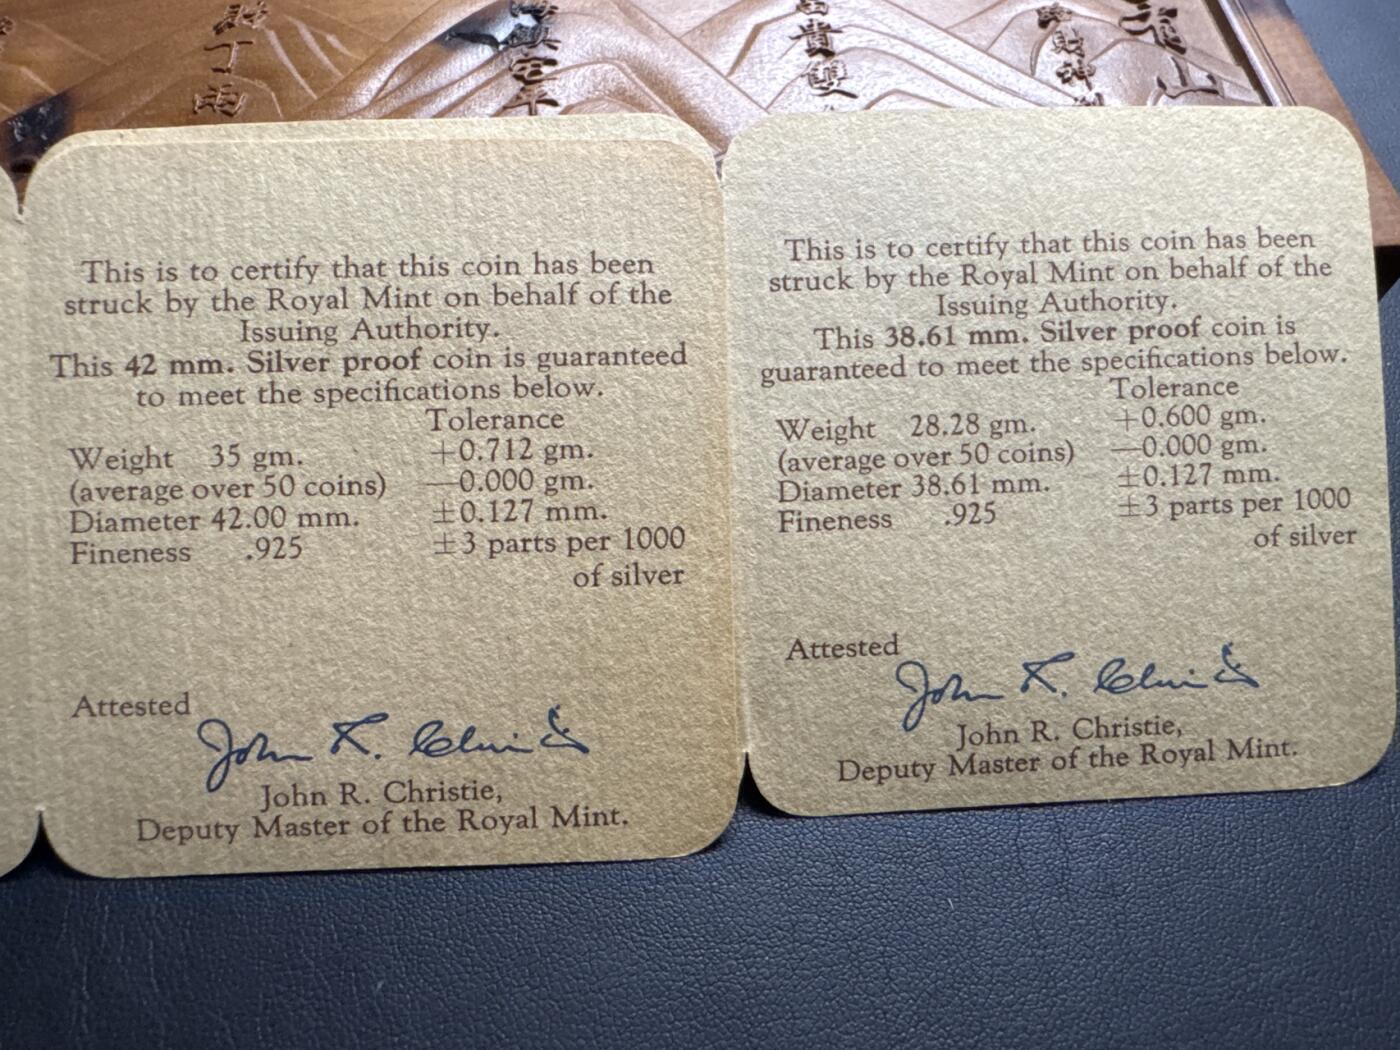 富
貴
雙
山
This is to certify that this coin has been
struck by the Royal Mint on behalf of the
Issuing Authority.
This 42 mm. Silver proof coin is guaranteed
to meet the specifications below.
Tolerance
Weight 35 gm. +0.712 gm.
(average over 50 coins) —0.000 gm.
Diameter 42.00 mm. ±0.127 mm.
Fineness .925 ±3 parts per 1000
of silver
Attested
John R. Christie
John R. Christie,
Deputy Master of the Royal Mint.
This is to certify that this coin has been
struck by the Royal Mint on behalf of the
Issuing Authority.
This 38.61 mm. Silver proof coin is
guaranteed to meet the specifications below.
Tolerance
Weight 28.28 gm. +0.600 gm.
(average over 50 coins) —0.000 gm.
Diameter 38.61 mm. ±0.127 mm.
Fineness .925 ±3 parts per 1000
of silver
Attested
John R. Christie
John R. Christie,
Deputy Master of the Royal Mint.